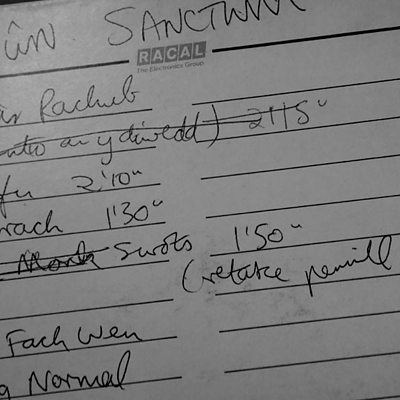 ûn. SANCTUM
RACAL
The Electronics Group
Rachub
ar y diwedd) 2'15"
2'10"
wrach 1'30"
Swots 1'50"
(retake penill
Fach Wen
Normal